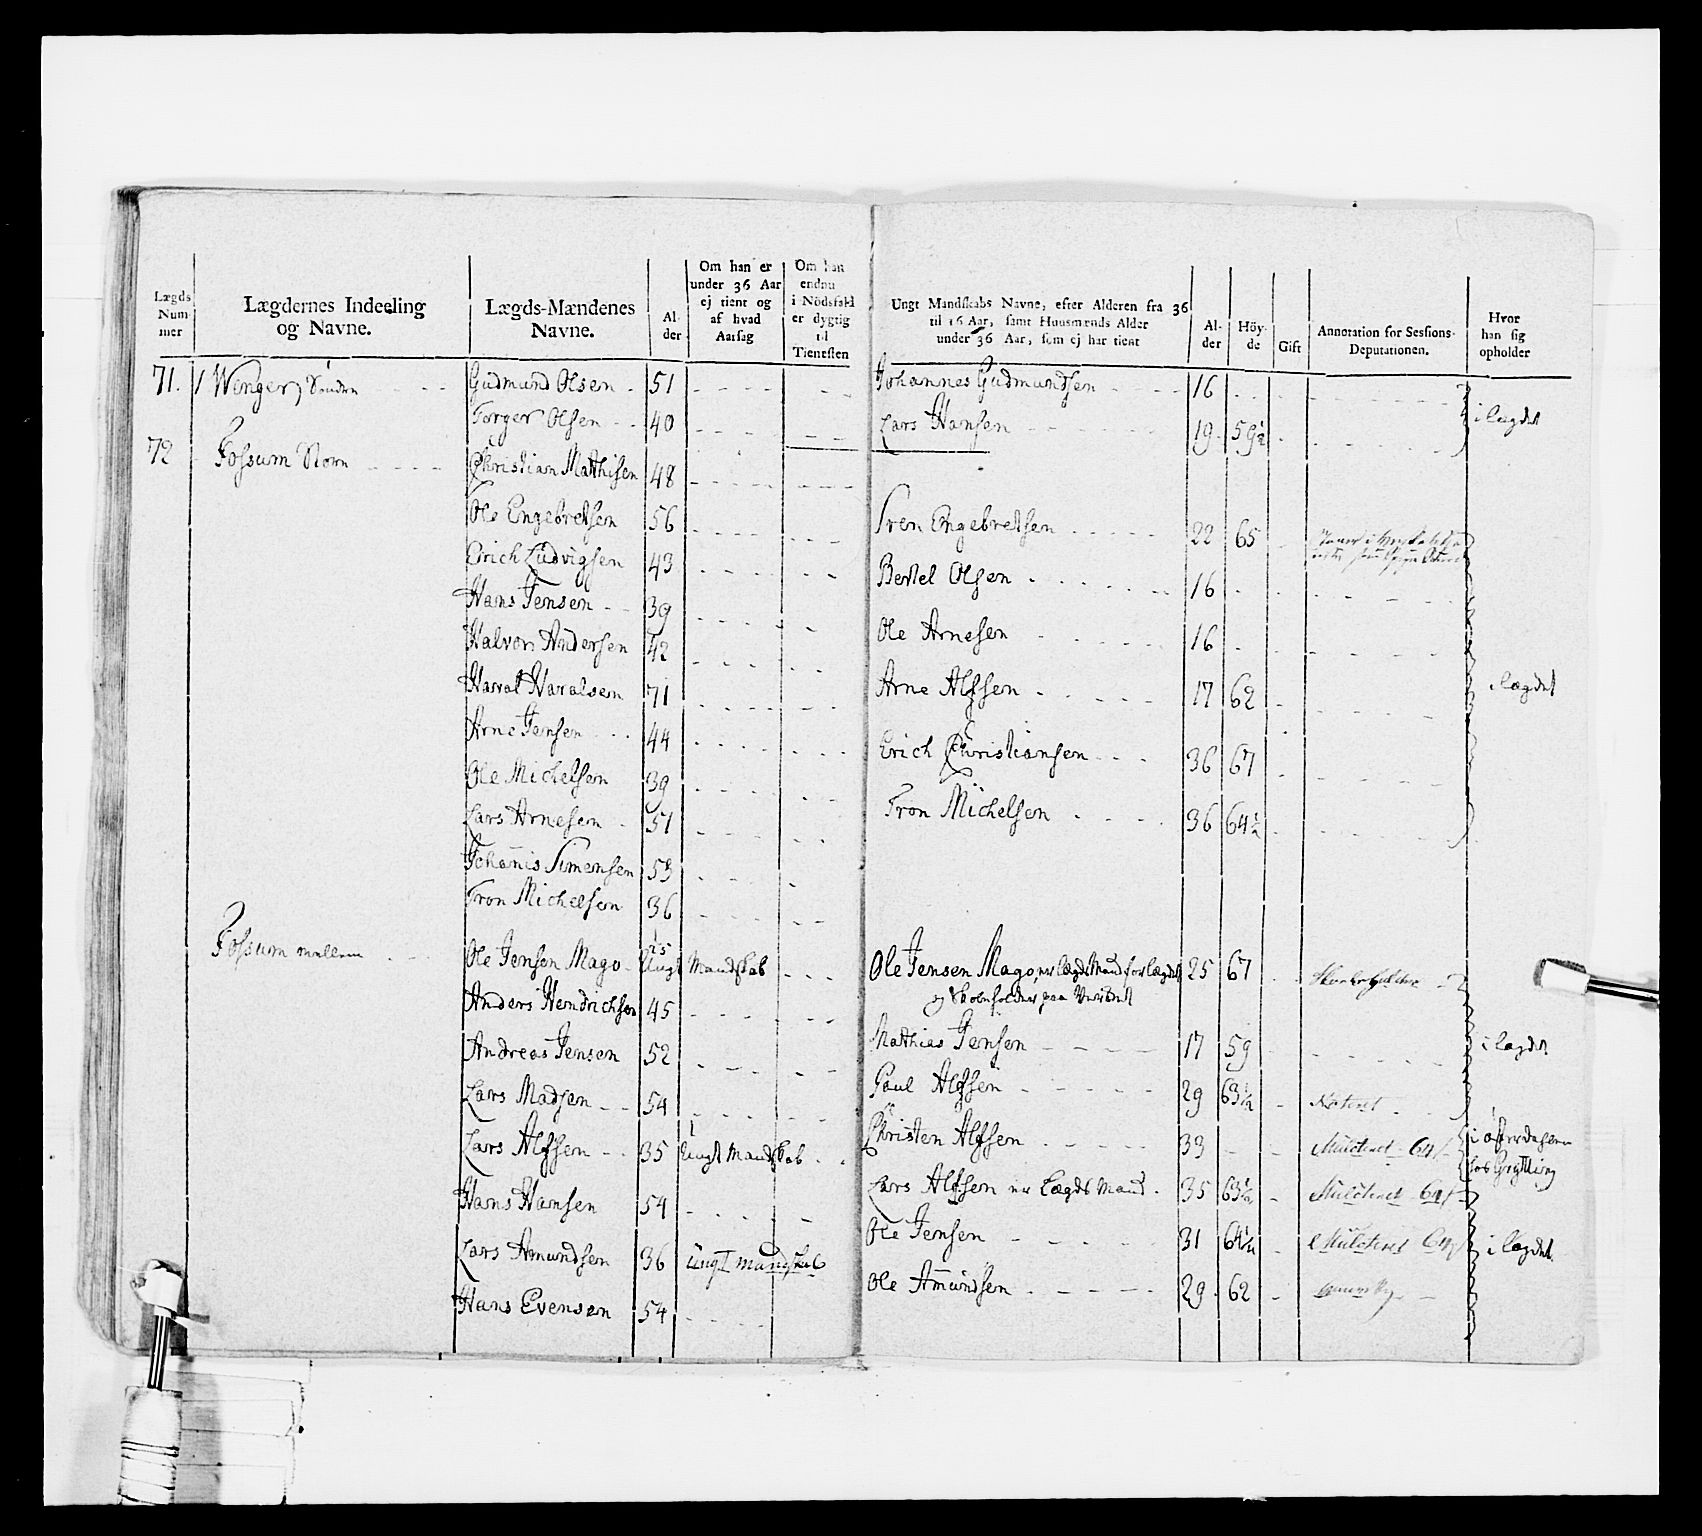 Lægds Num- mer
Lægdernes Indeeling og Navne.
Lægds-Mændenes Navne.
Al- der
Om han er under 36 Aar ej tient og af hvad Aarsag
Om han endnu i Nödsfald er dygtig til Tienesten
71. Wenger Söndre Gudmund Olsen 51
Torger Olsen 40
72 Fossum Store Christian Mathisen 48
Ole Engebretsen 56
Erich Ludvigsen 43
Hans Jensen 39
Halvor Andersen 42
Haral Haralsen 71
Arne Jensen 44
Ole Michelsen 39
Lars Arnesen 51
Johanis Simensen 53
Tron Michelsen 36
Fossum mellem Ole Jensen Mago 25 Ungt Mandskab
Anders Hendrichsen 45
Andreas Jensen 52
Lars Madsen 54
Lars Alfsen 35 Ungt Mandskab
Hans Hansen 54
Lars Amundsen 36 Ungt Mandskab
Hans Evensen 54
Ungt Mandskabs Navne, efter Alderen fra 36 til 16 Aar, samt Huusmænds Alder under 36 Aar, som ej har tient
Al- der
Höy- de
Gift
Annotation for Sessions- Deputationen.
Hvor han sig opholder
Johannes Gudmundsen 16
Lars Hansen 19 59½ i lægdet
Sven Engebretsen 22 65
Bertel Olsen 16
Ole Arnesen 16
Arne Alfsen 17 62 i lægdet
Erich Christiansen 36 67
Tron Michelsen 36 64½
Ole Jensen Mago, er lægdsmand for lægdet 25 67
og Skoeholder paa
Mathias Jensen 17 59 i lægdet
Poul Alfsen 29 63½ Noteret
Christen Alfsen 33 Mulcteret 64 i Österdahlen
hos Grytting
Lars Alfsen er Lægds Mand 35 63½ Mulcteret 64
Ole Jensen 31 64½ Mulcteret 64 i lægdet
Ole Amundsen 29 62